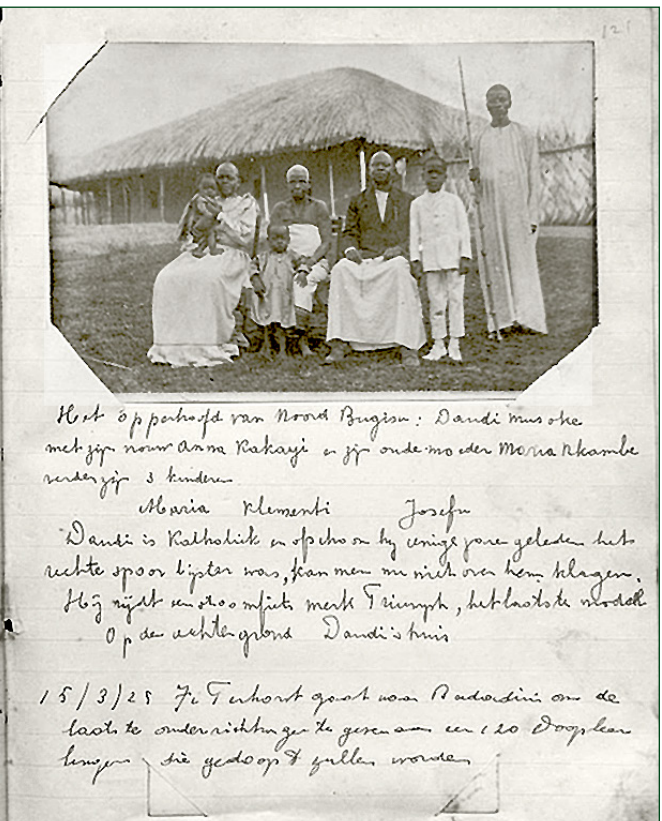 121
Het opperhoofd van Noord Bugisu: Daudi Musoke
met zijn vrouw Anna Kakayi en zijn oude moeder Maria Nkambe
verder zijn 3 kinderen
Maria Klementi Josefu
Daudi is Katholiek en ofschoon hij eenige jaren geleden het
rechte spoor bijster was, kan men nu niet over hem klagen.
Hij rijdt een stoomfiets merk Triumph, het laatste model
Op den achtergrond Daudi's huis
15/3/25 Terhorst gaat naar Budadiri om de
laatste onderrichtingen te geven aan een 120 Doopleer
lingen die gedoopt zullen worden